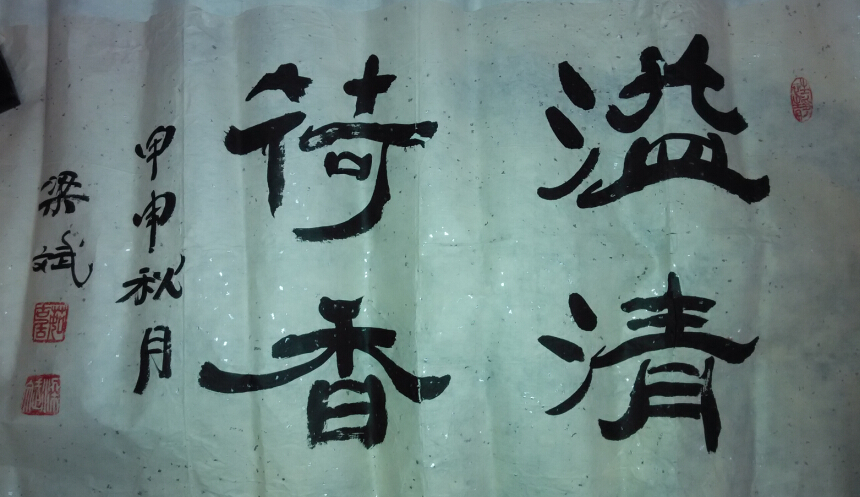 溢清
荷香
甲申秋月
梁斌